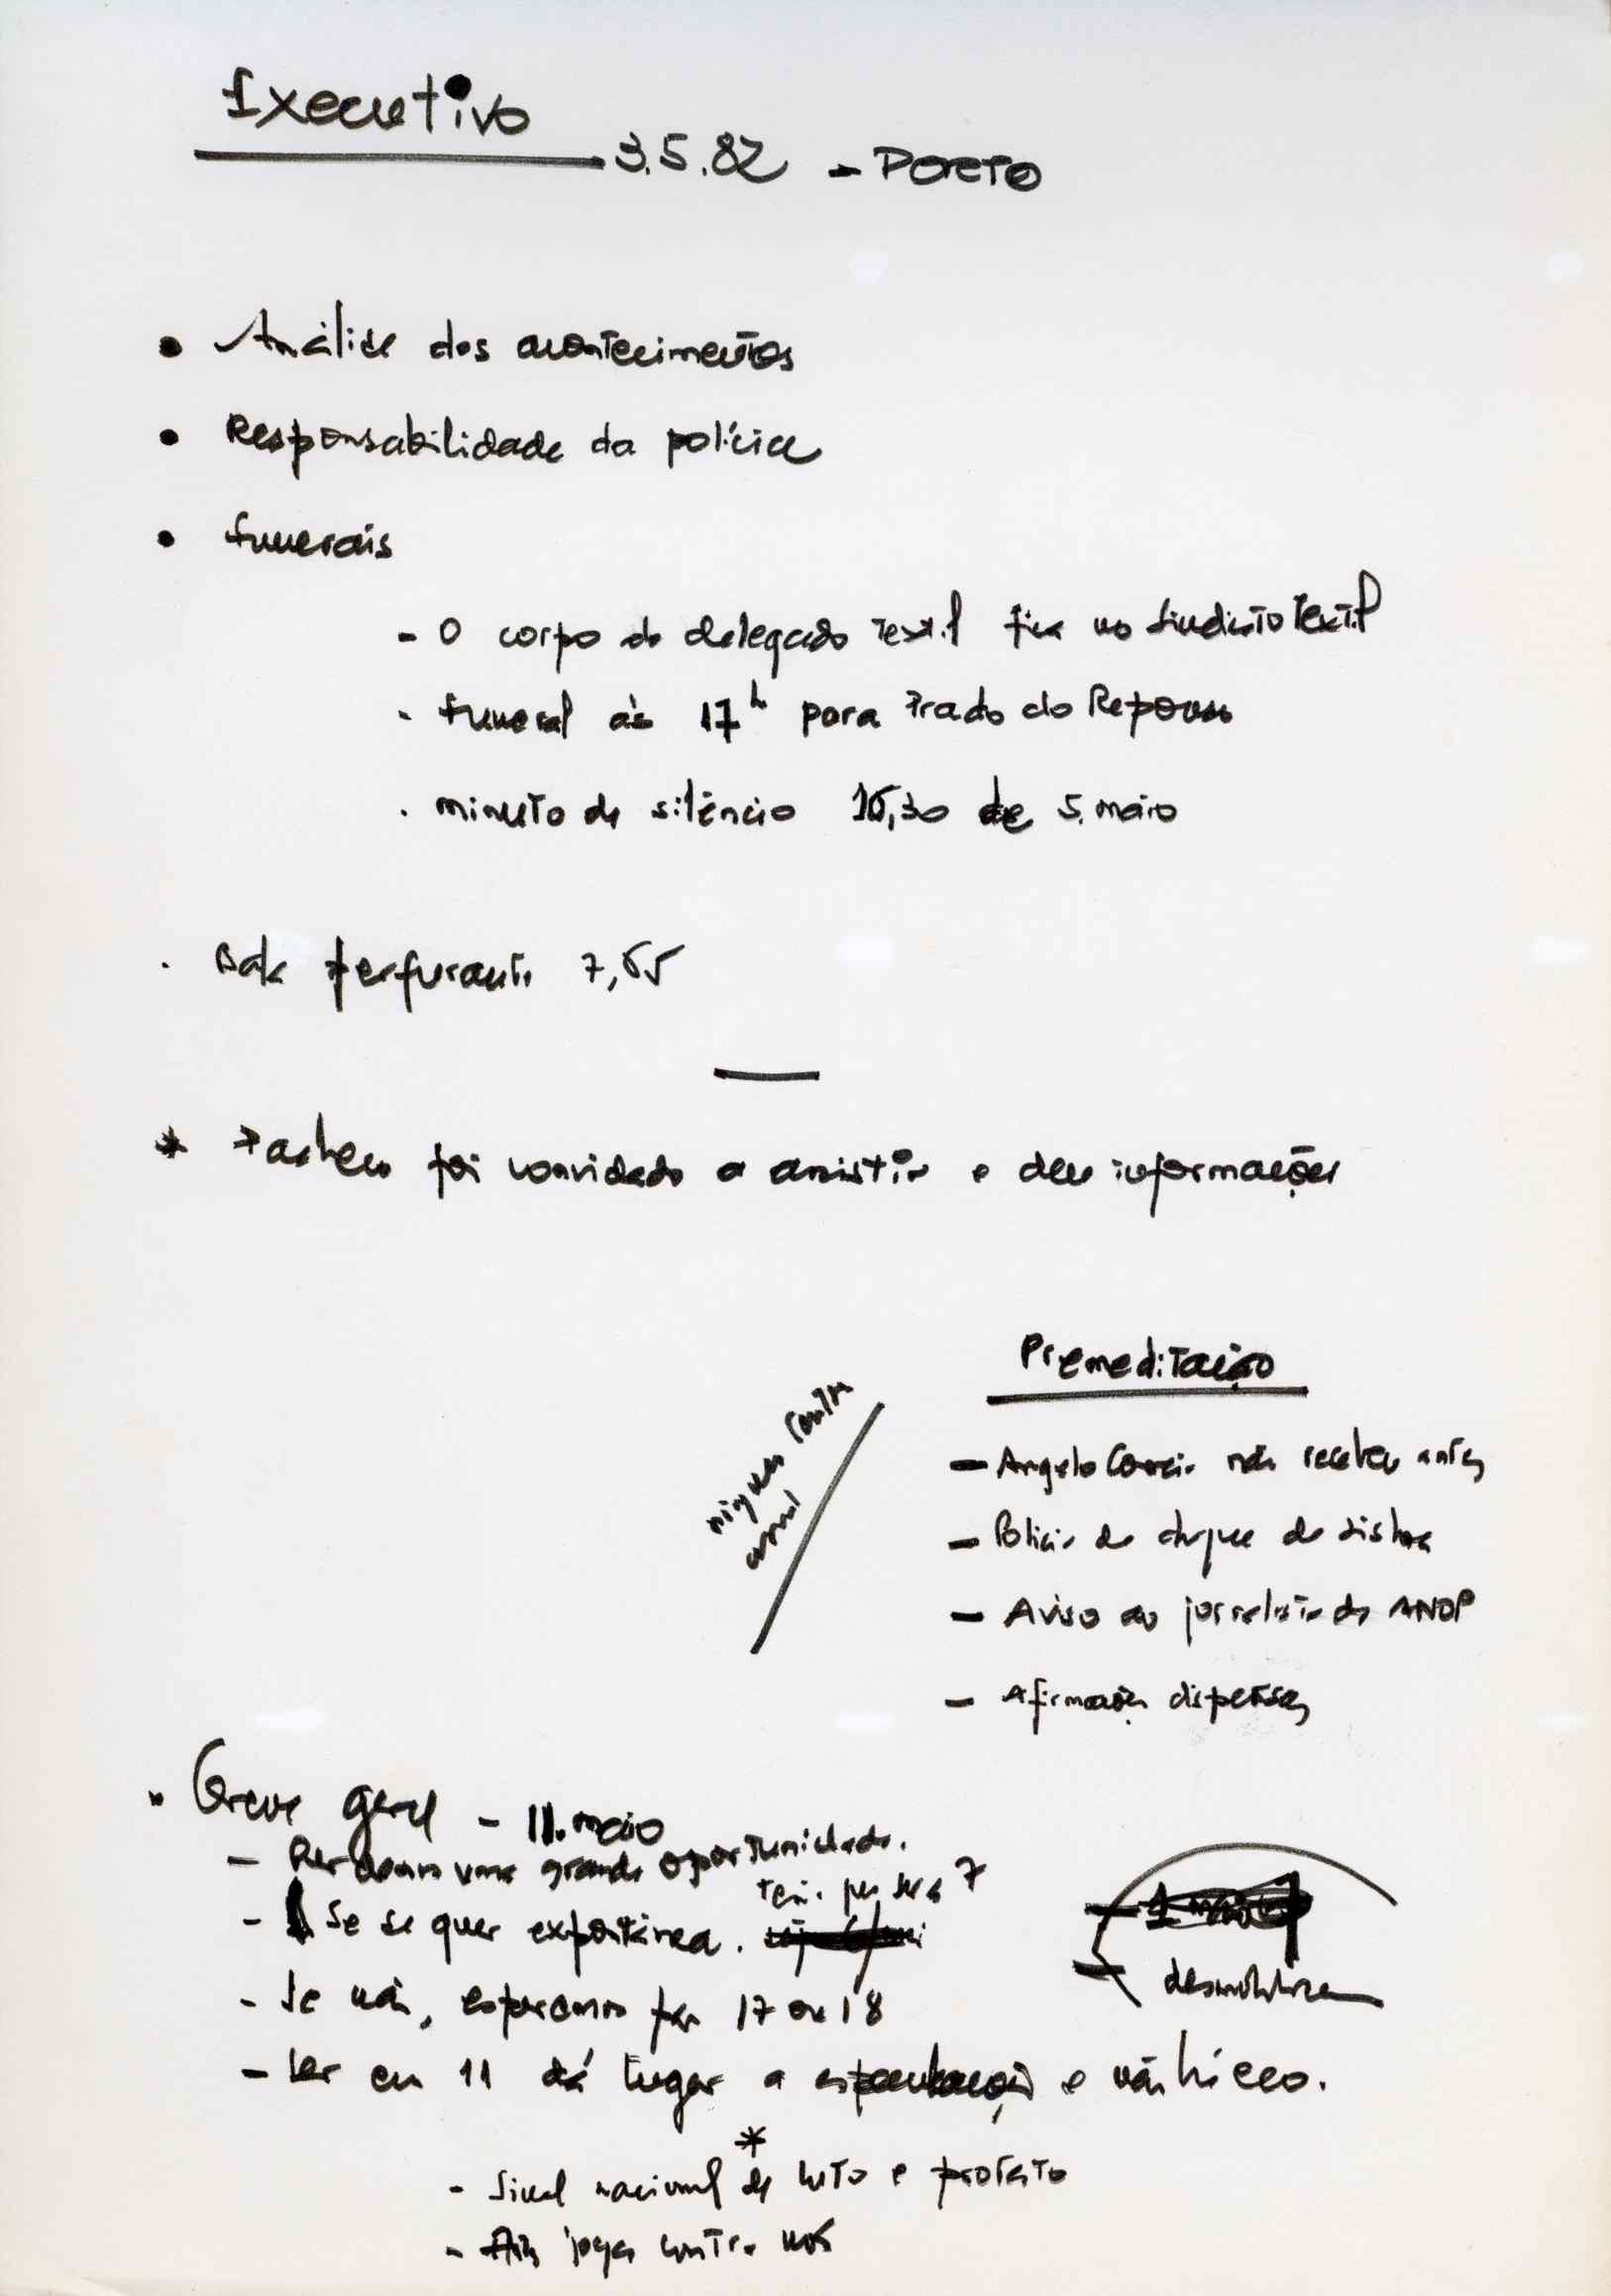 Executivo
3.5.82 - PORTO
• Análise dos acontecimentos
• Responsabilidade da polícia
• funerais
- O corpo do delegado Textil fica no Sindicato Textil
- funeral às 17h para Prado do Repouso
. minuto de silêncio de 5. maio
. Bala perfurante 7,65
* Pacheco foi convidado a assistir e deu informações
Premeditação
ninguem contra
- Angelo Correia não recebeu antes
- Policia de choque de Lisboa
- Aviso ao jornalista da ANOP
- Afirmações dispersas
. Greve geral - 11. maio
- uma grande oportunidade.
7
- Se se quer expontânea.
- Se não, esperamos por 17 ou 18
desmobiliza
- Ser em 11 dá lugar a especulação e não há eco.
*
- Sinal nacional de luto e protesto
- joga contra nós